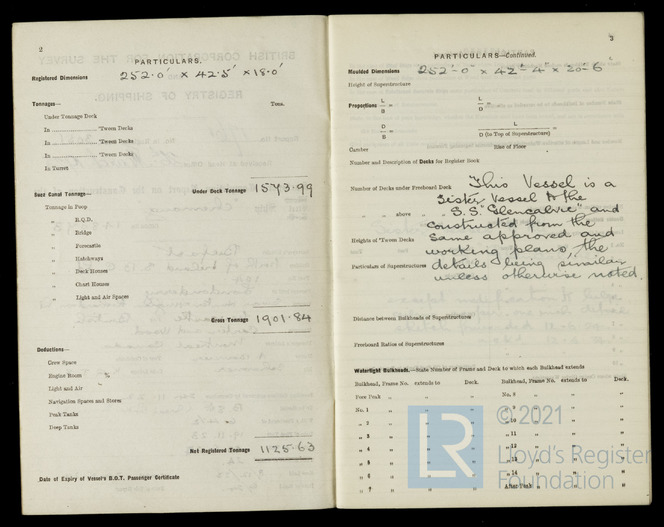 2
PARTICULARS.
Registered Dimensions 252·0' × 42·5' × 18·0'
Tonnages— Tons.
Under Tonnage Deck
In ............ 'Tween Decks
In ............ 'Tween Decks
In ............ 'Tween Decks
In Turret
Suez Canal Tonnage— Under Deck Tonnage 1573·99
Tonnage in Poop
„ R.Q.D.
„ Bridge
„ Forecastle
„ Hatchways
„ Deck Houses
„ Chart Houses
„ Light and Air Spaces
Gross Tonnage 1901·84
Deductions—
Crew Space
Engine Room %
Light and Air
Navigation Spaces and Stores
Peak Tanks
Deep Tanks
Net Registered Tonnage 1125·63
Date of Expiry of Vessel's B.O.T. Passenger Certificate
3
PARTICULARS—Continued.
Moulded Dimensions 252'-0" × 42'-4" × 20'-6"
Height of Superstructure
Proportions L/B = L/D =
D/B = L/D (to Top of Superstructure) =
Camber Rise of Floor
Number and Description of Decks for Register Book
Number of Decks under Freeboard Deck This Vessel is a
Sister Vessel to the
„ „ above „ „ S.S. "Glencalvie" and
constructed from the
Heights of 'Tween Decks same approved and
working plans, the
Particulars of Superstructures details being similar
unless otherwise noted.
Distance between Bulkheads of Superstructures
Freeboard Ratios of Superstructures
Watertight Bulkheads.—State Number of Frame and Deck to which each Bulkhead extends
Bulkhead, Frame No. extends to Deck. Bulkhead, Frame No. extends to Deck.
Fore Peak „ „ No. 8 „ „
No. 1 „ „ „ „ 9 „ „ „
„ 2 „ „ „ „ 10 „ „ „
„ 3 „ „ „ „ 11 „ „ „
„ 4 „ „ „ „ 12 „ „ „
„ 5 „ „ „ „ 13 „ „ „
„ 6 „ „ „ „ 14 „ „ „
„ 7 „ „ „ After Peak „ „ „
LR
© 2021
Lloyd's Register
Foundation